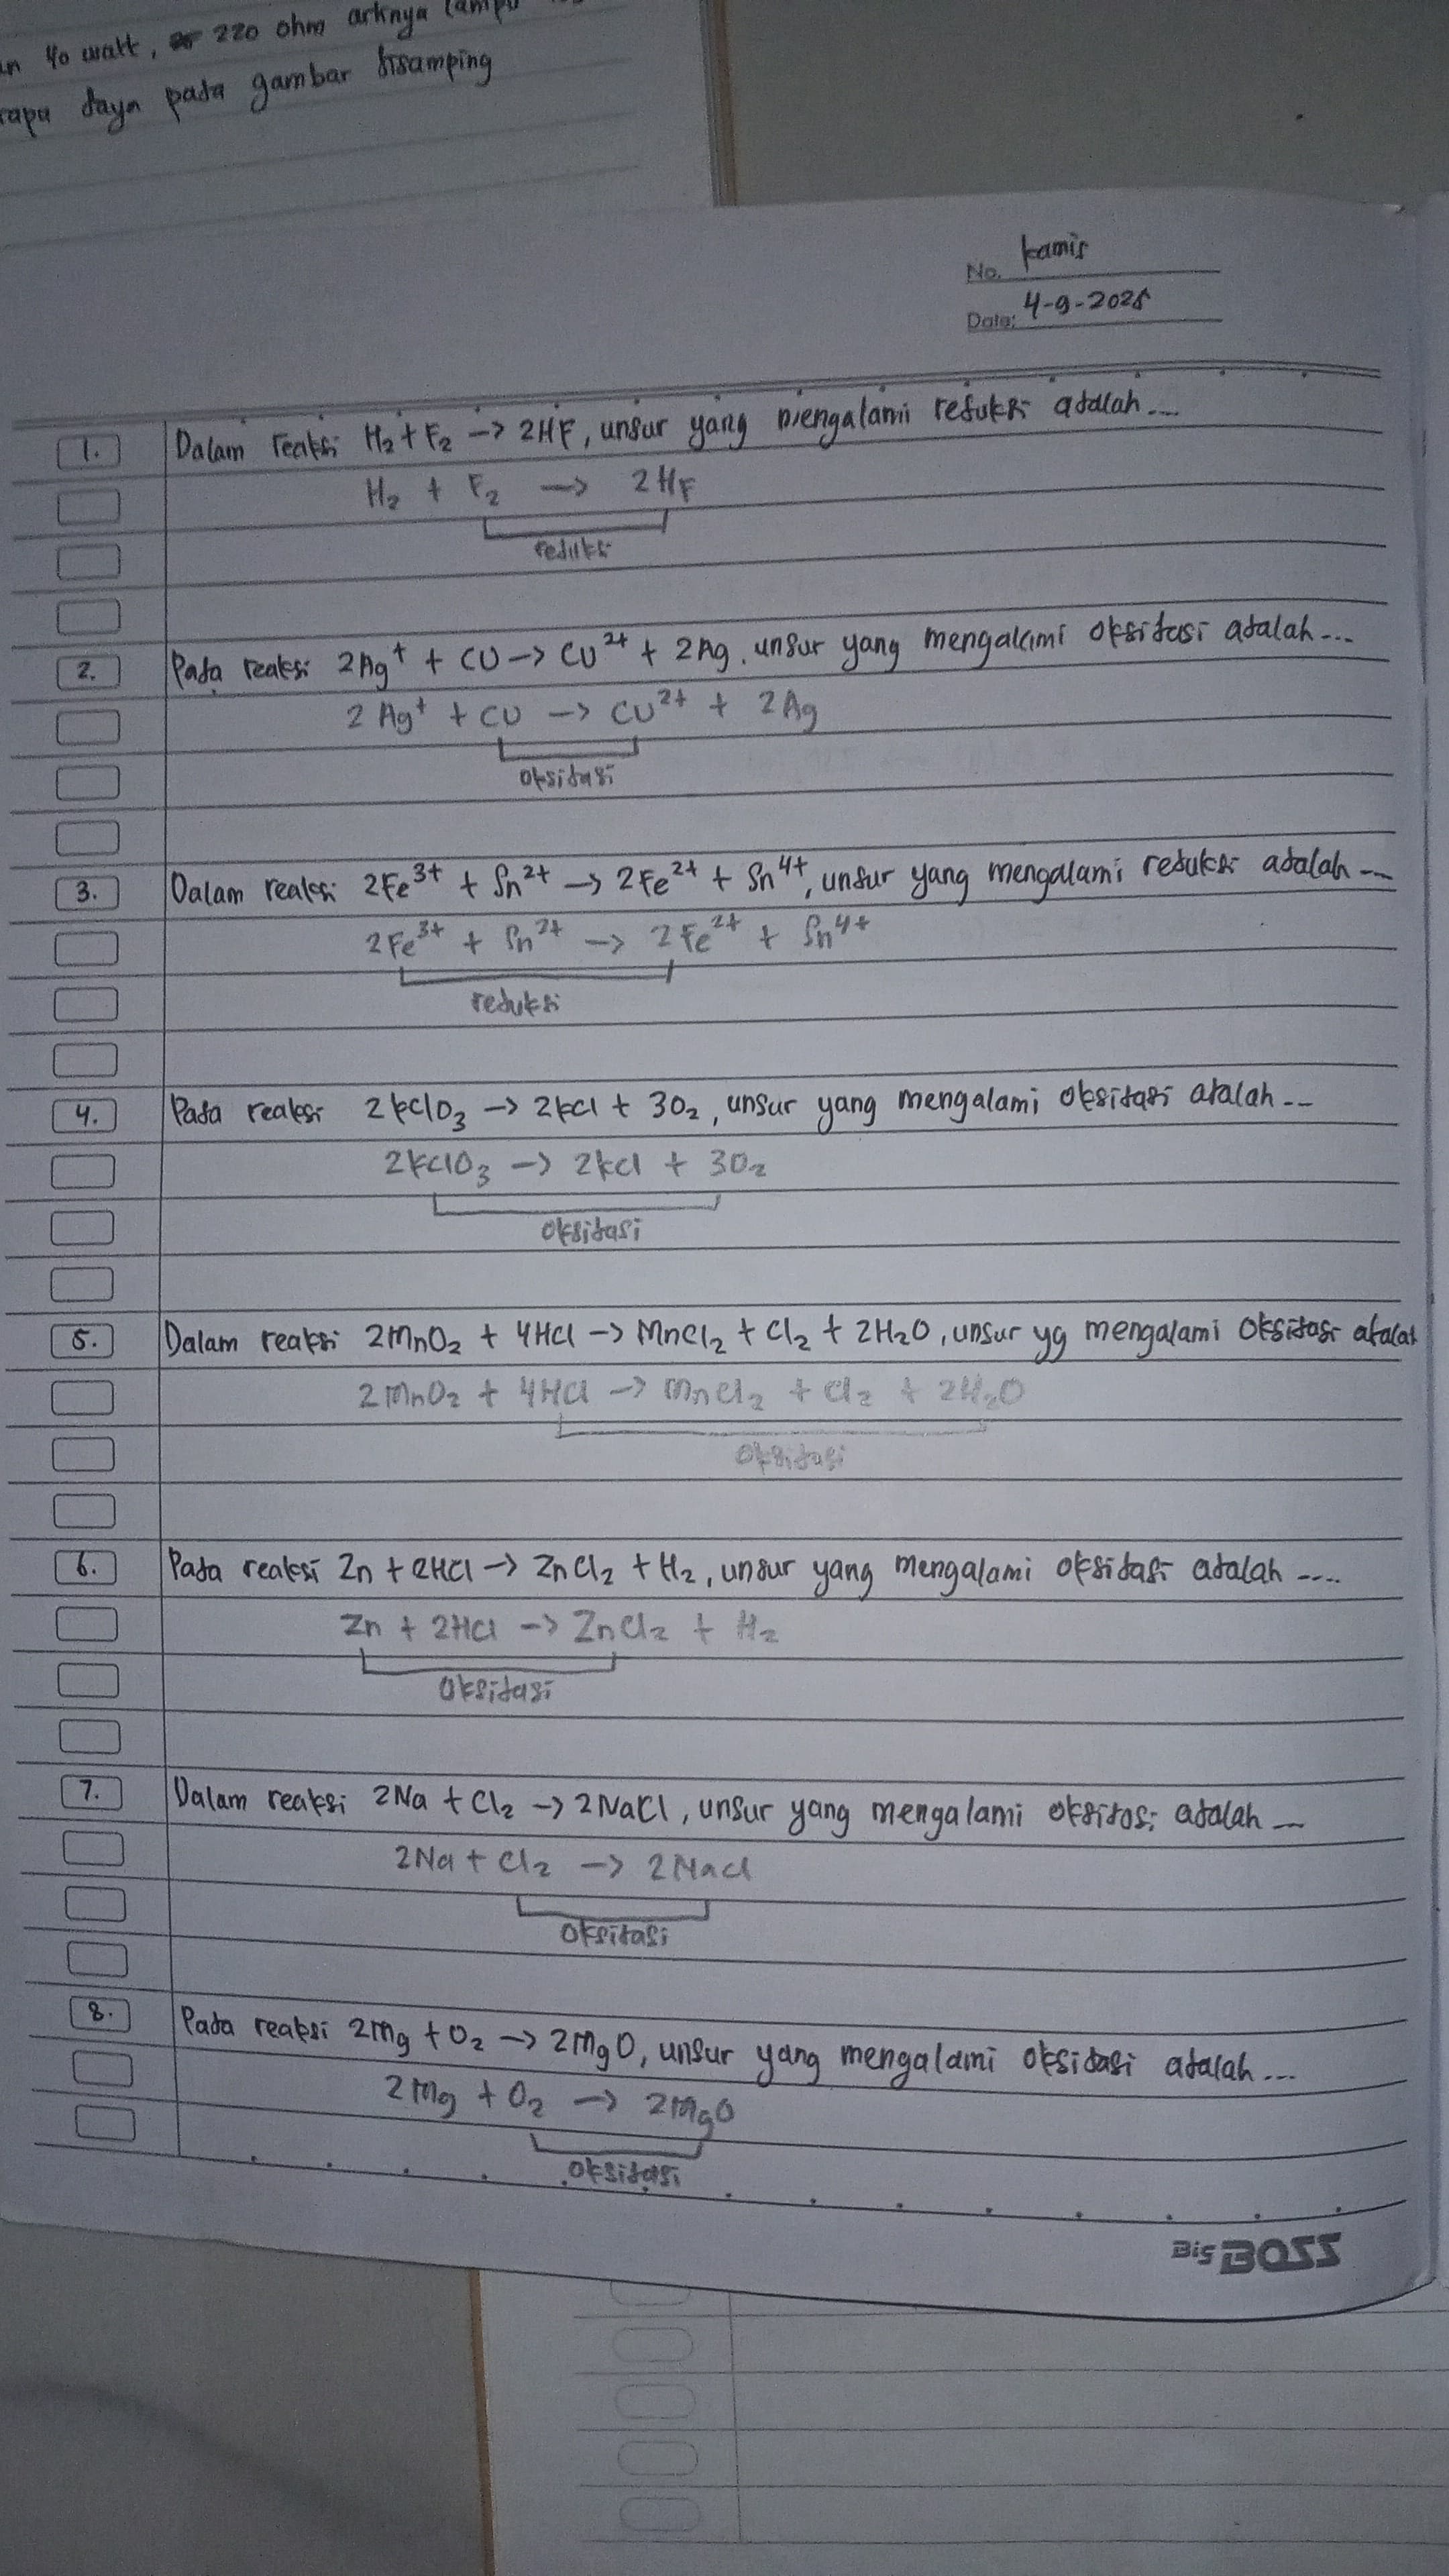 40 watt, 220 ohm artnya lampu
daya pada gambar disamping
No. kamis
Date: 4-9-2025
1. Dalam reaksi H₂ + F₂ → 2HF, unsur yang mengalami reduksi adalah...
H₂ + F₂ → 2HF
reduksi
2. Pada reaksi 2Ag⁺ + CU → CU²⁺ + 2Ag, unsur yang mengalami oksidasi adalah...
2Ag⁺ + CU → CU²⁺ + 2Ag
oksidasi
3. Dalam reaksi 2Fe³⁺ + Sn²⁺ → 2Fe²⁺ + Sn⁴⁺, unsur yang mengalami reduksi adalah...
2Fe³⁺ + Sn²⁺ → 2Fe²⁺ + Sn⁴⁺
reduksi
4. Pada reaksi 2KClO₃ → 2KCl + 3O₂, unsur yang mengalami oksidasi adalah...
2KClO₃ → 2KCl + 3O₂
oksidasi
5. Dalam reaksi 2MnO₂ + 4HCl → MnCl₂ + Cl₂ + 2H₂O, unsur yg mengalami oksidasi adalah
2MnO₂ + 4HCl → MnCl₂ + Cl₂ + 2H₂O
oksidasi
6. Pada reaksi Zn + 2HCl → ZnCl₂ + H₂, unsur yang mengalami oksidasi adalah....
Zn + 2HCl → ZnCl₂ + H₂
oksidasi
7. Dalam reaksi 2Na + Cl₂ → 2NaCl, unsur yang mengalami oksidasi adalah...
2Na + Cl₂ → 2NaCl
oksidasi
8. Pada reaksi 2Mg + O₂ → 2MgO, unsur yang mengalami oksidasi adalah...
2Mg + O₂ → 2MgO
oksidasi
Big BOSS